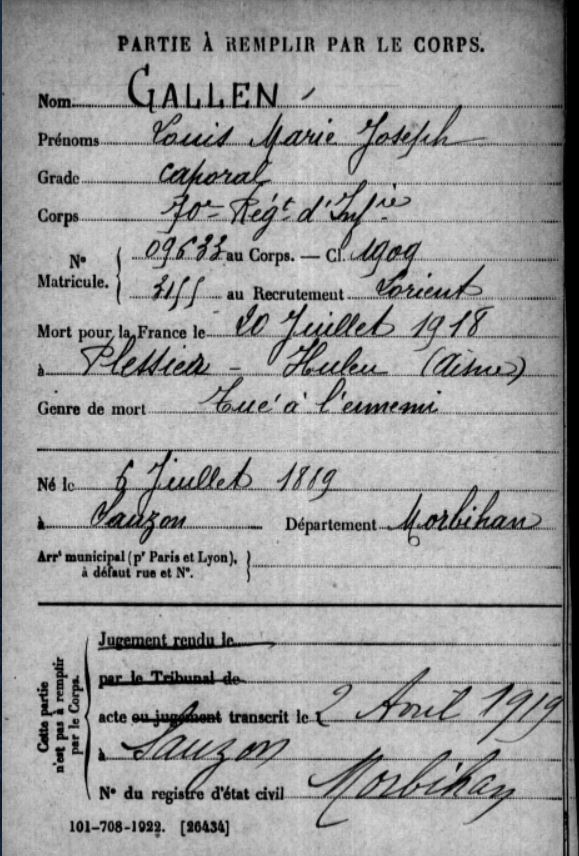 PARTIE À REMPLIR PAR LE CORPS.
Nom GALLEN
Prénoms Louis Marie Joseph
Grade caporal
Corps 70e Régt d'Infie
No Matricule. 09633 au Corps. — Cl. 1909
3155 au Recrutement Lorient
Mort pour la France le 20 Juillet 1918
à Plessier - Huleu (Aisne)
Genre de mort Tué à l'ennemi
Né le 6 Juillet 1889
à Sauzon Département Morbihan
Arrt municipal (pr Paris et Lyon),
à défaut rue et No.
Cette partie
n'est pas à remplir
par le Corps.
Jugement rendu le
par le Tribunal de
acte ou jugement transcrit le 2 Avril 1919
à Sauzon
No du registre d'état civil Morbihan
101-708-1922. [26434]